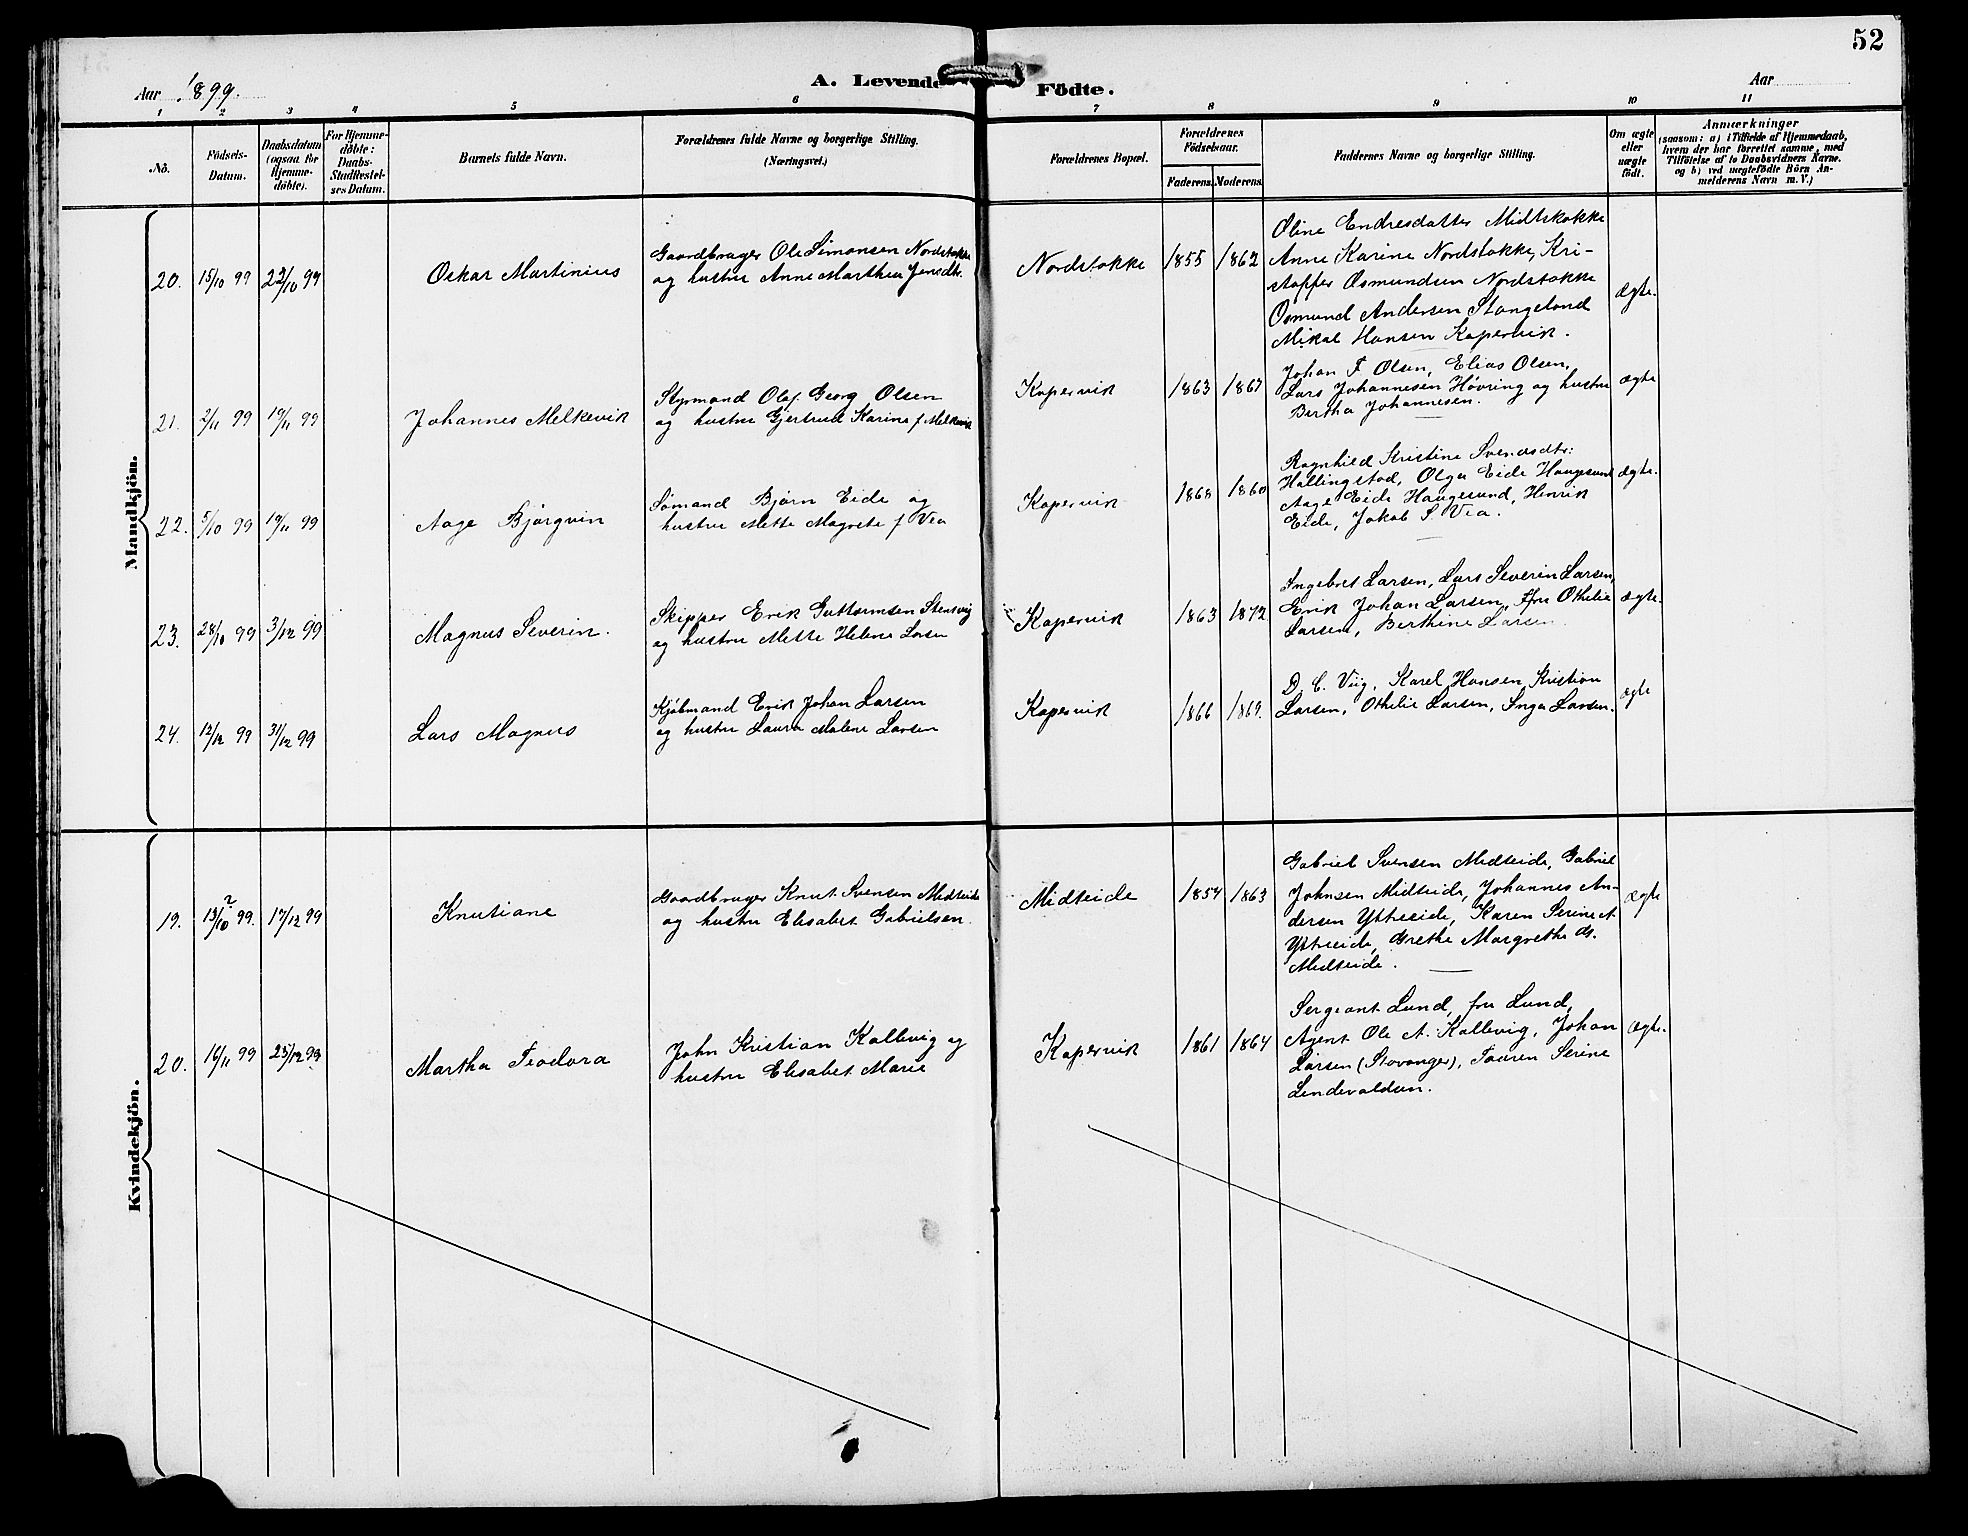 52
Aar 1899.
A. Levende Födte.
Aar
1 2 3 4 5 6 7 8 9 10 11
No.
Födsels-Datum.
Daabsdatum (ogsaa for Hjemme-döbte).
For Hjemme-döbte: Daabs-Stadfæstel-ses Datum.
Barnets fulde Navn.
Forældrenes fulde Navne og borgerlige Stilling.
(Næringsvei.)
Forældrenes Bopæl.
Forældrenes Födselsaar.
Faderens. Moderens.
Faddernes Navne og borgerlige Stilling.
Om ægte eller uægte födt.
Anmærkninger
(saasom: a) i Tilfælde af Hjemmedaab,
hvem der har forrettet samme, med
Tilföielse af to Daabsvidners Navne.
og b) ved uægtefödte Börn An-
melderens Navn m. V.)
Mandkjön.
20. 15/10 99 22/10 99
Oskar Martinius
Gaardbruger Ole Simonsen Nordstokke
og hustru Anne Marthea Jensdtr.
Nordstokke
1855 1862
Oline Endresdatter Midtstokke
Anne Karine Nordstokke, Kri-
stoffer Osmundsen Nordstokke
Osmund Andersen Stangeland
Mikal Hansen Kopervik.
ægte.
21. 2/11 99 19/11 99
Johannes Melkevik
Styrmand Olaf Georg Olsen
og hustru Gjertrud Karine f Melkevik
Kopervik
1863 1867
Johan F Olsen, Elias Olsen,
Lars Johannesen Høvring og hustru
Bertha Johannesen.
ægte
22. 5/10 99 19/11 99
Aage Bjørgvin
Sømand Bjørn Eide og
hustru Mette Magrete f Vea
Kopervik
1868 1860
Ragnhild Kristine Svendsdtr:
Hallingstad, Olga Eide Haugesund
Aage Eide Haugesund, Henrik
Eide, Jakob S. Vea.
ægte.
23. 28/10 99 3/12 99
Magnus Severin.
Skipper Erik Guttormsen Stensvig
og hustru Mette Helene Larsen
Kopervik
1863 1872
Ingebret Larsen, Lars Severin Larsen,
Erik Johan Larsen, Fru Othelie
Larsen, Berthine Larsen
ægte.
24. 12/12 99 31/12 99
Lars Magnus
Kjøbmand Erik Johan Larsen
og hustru Laura Malene Larsen
Kopervik
1866 1869.
D. C. Viig, Karel Hansen Kristian
Larsen, Othelie Larsen, Inga Larsen.
ægte
Kvindekjön.
19. 13/10 99. 17/12 99
Knutiane
Gaardbruger Knut Svensen Midteide
og hustru Elisabet Gabrielsen.
Midteide
1854 1863
Gabriel Svensen Midteide, Gabriel
Johnsen Midteide, Johannes An-
dersen Yttreeide, Karen Serine A
Yttreeide, Grethe Margrethe G.
Midteide.
ægte
20. 16/11 99 25/12 99
Martha Teodora
John Kristian Kallevig og
hustru Elisabet Marie
Kopervik
1861 1864
Sergeant Lund, fru Lund,
Agent Ole A. Kallevig, Johan
Larsen (Stavanger), Taaren Serine
Lendevaldsen.
ægte.